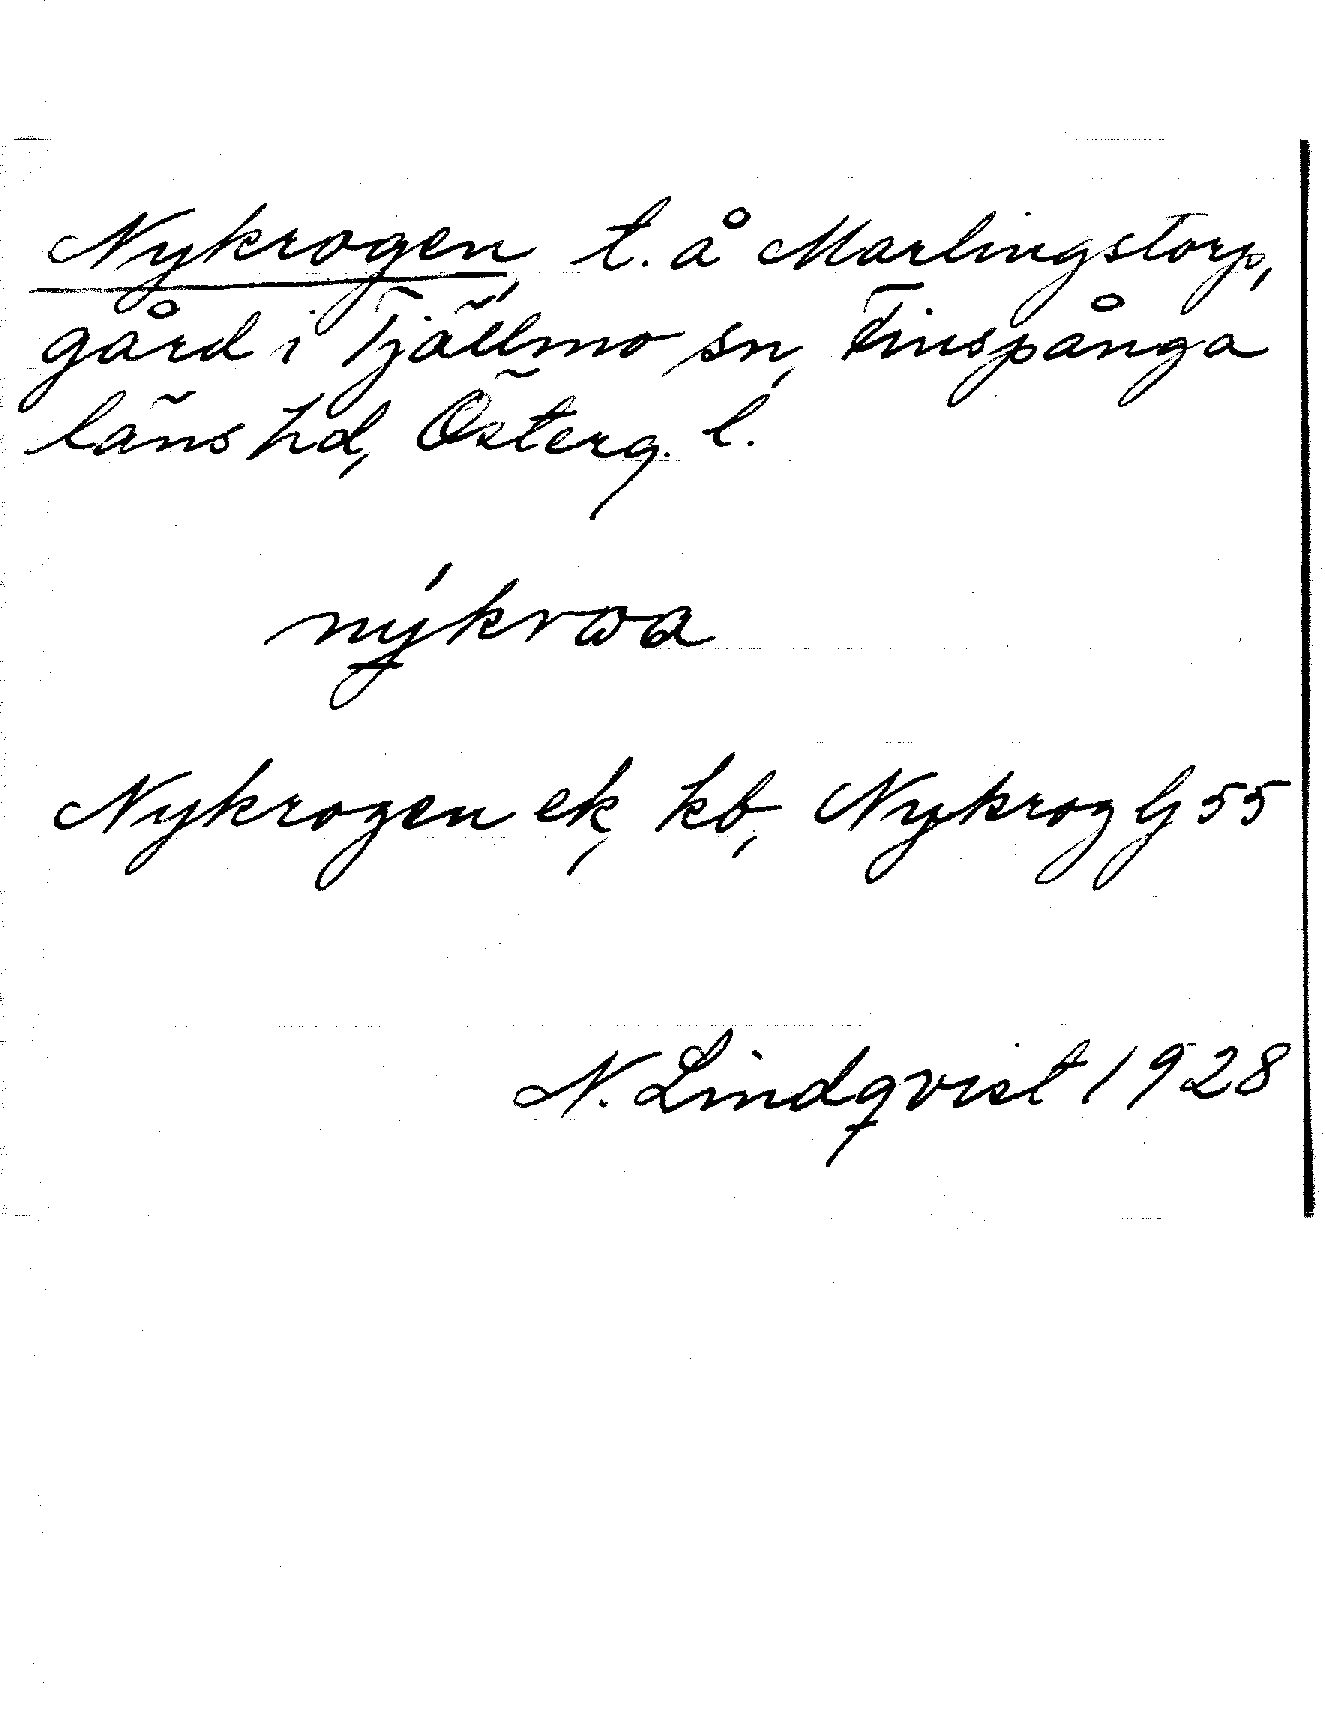 Nykrogen, t. å Marlingstorp,
gård i Tjällmo sn, Finspånga
läns hd, Österg. l.
nýkrωa
Nykrogen ek, kb, Nykrog Gj 55
N. Lindqvist 1928